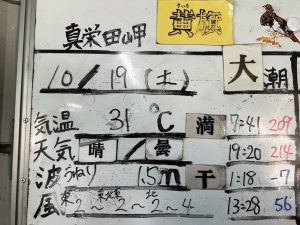 真栄田岬 きいろ 黄旗
10/19(土) 大潮
気温 31℃ 満 7:41 209
天気 晴/曇 19:20 214
波 うねり 1.5m 干 1:18 -7
風 東 東北東 北 2~2~2~4 13:28 56